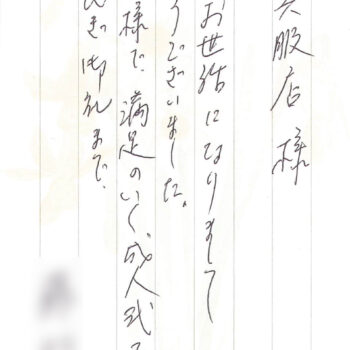 呉服店 様
お世話になりまして
うございました。
様で、満足のいく、成人式
急ぎ御礼まで。